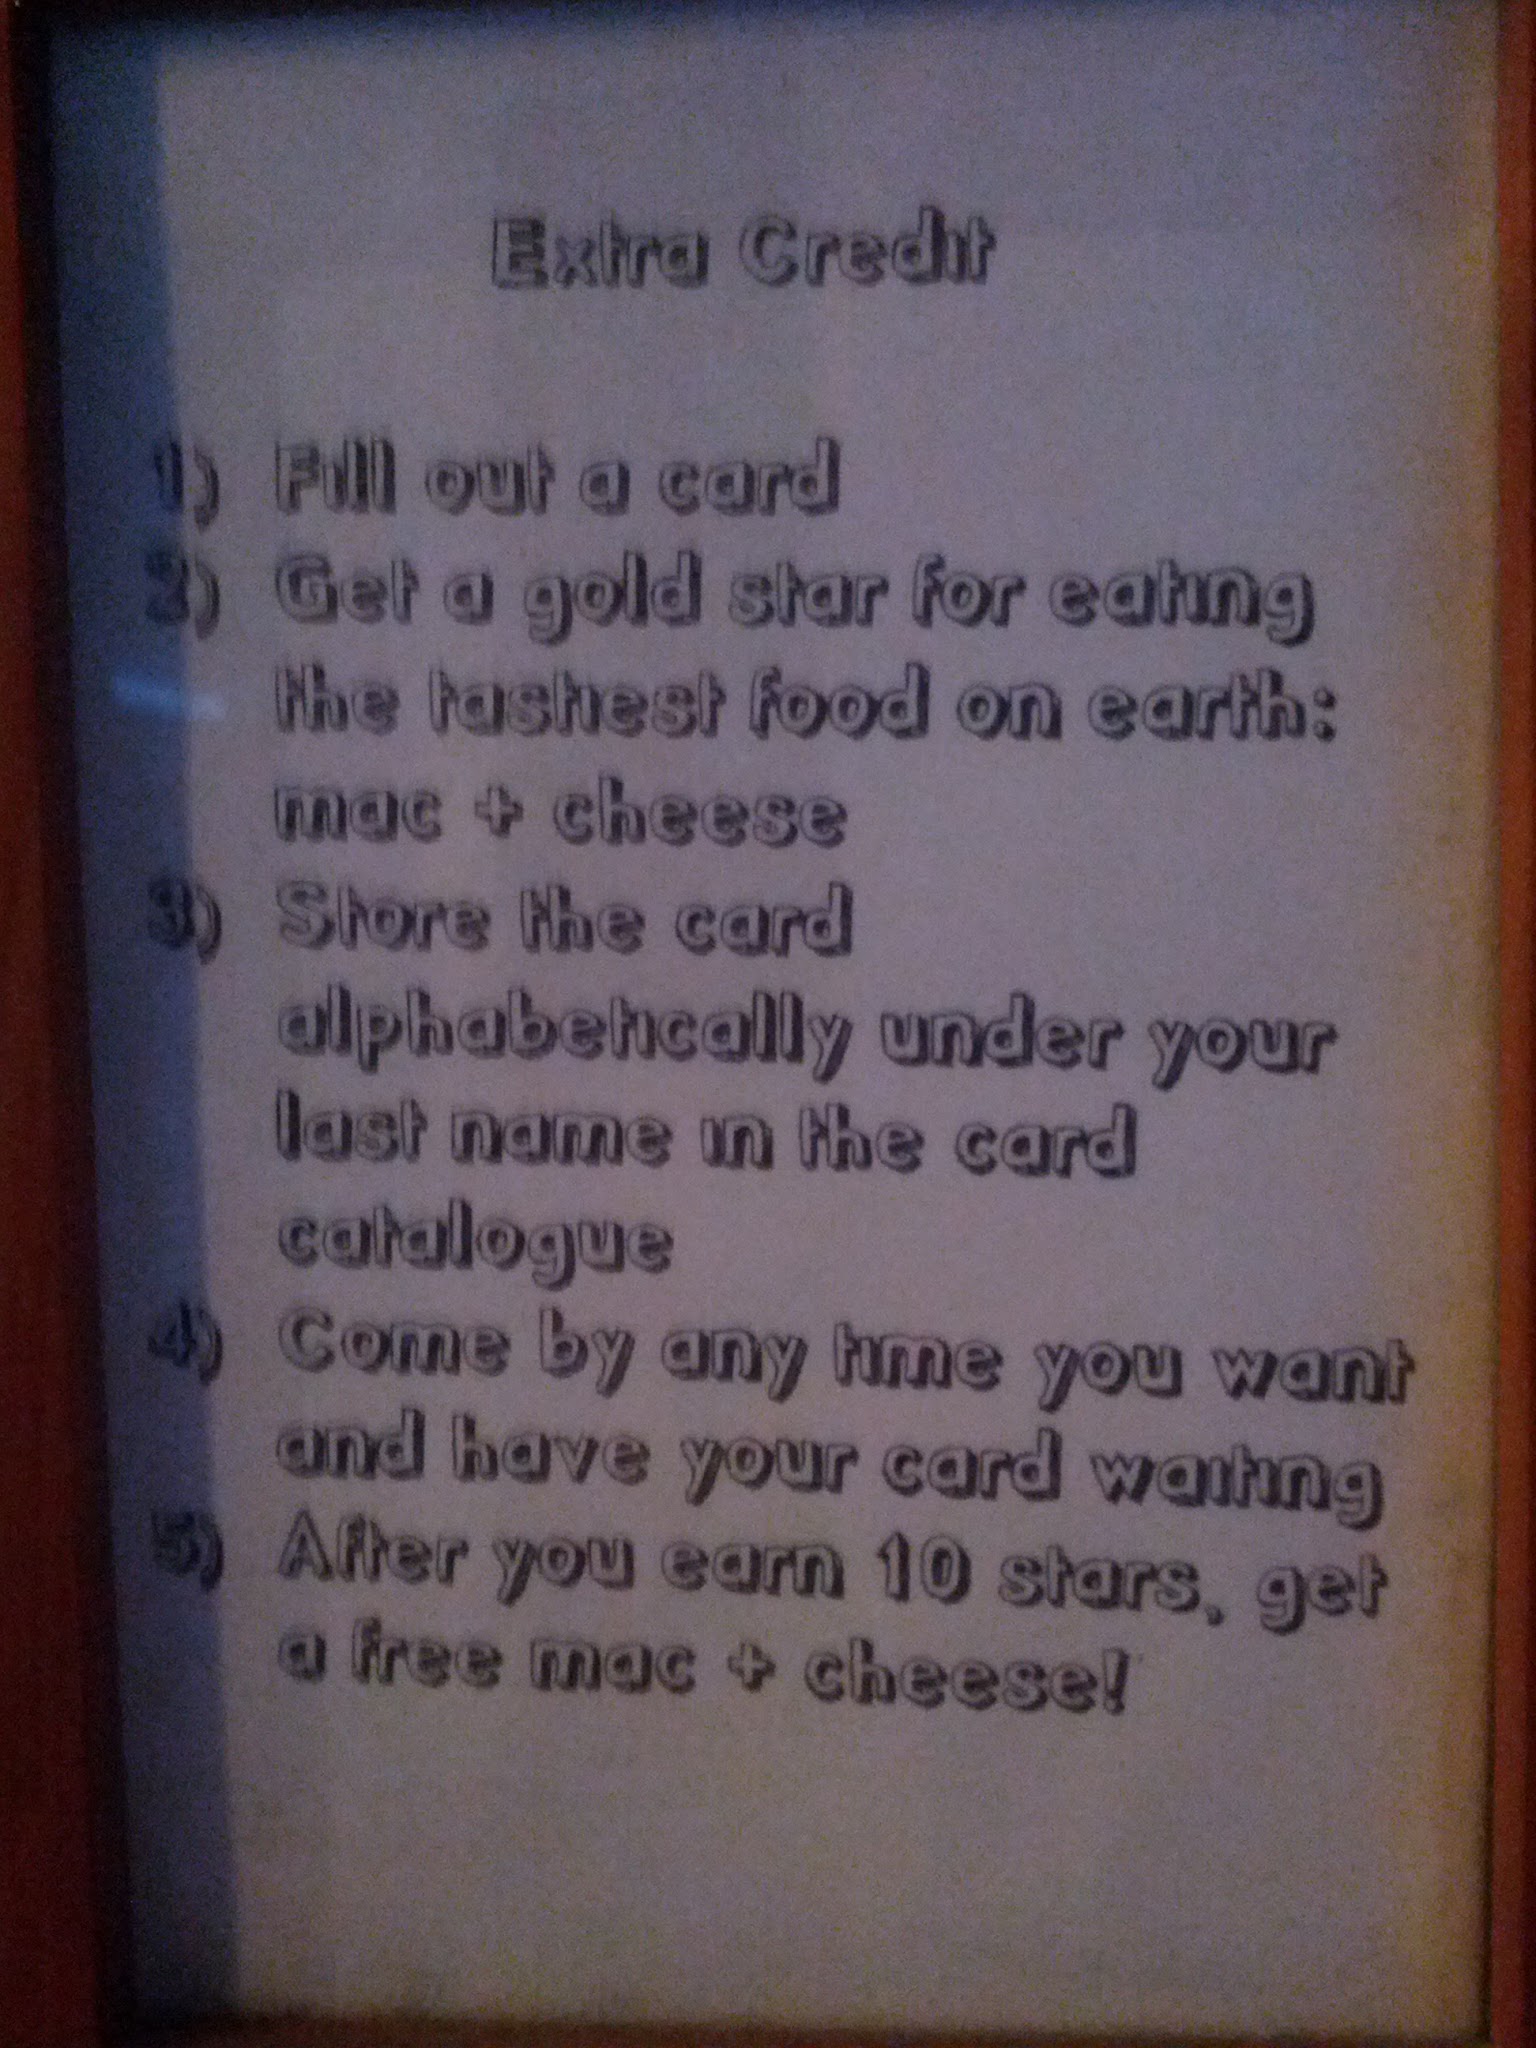 Extra Credit
1) Fill out a card
2) Get a gold star for eating
the tastiest food on earth:
mac + cheese
3) Store the card
alphabetically under your
last name in the card
catalogue
4) Come by any time you want
and have your card waiting
5) After you earn 10 stars, get
a free mac + cheese!